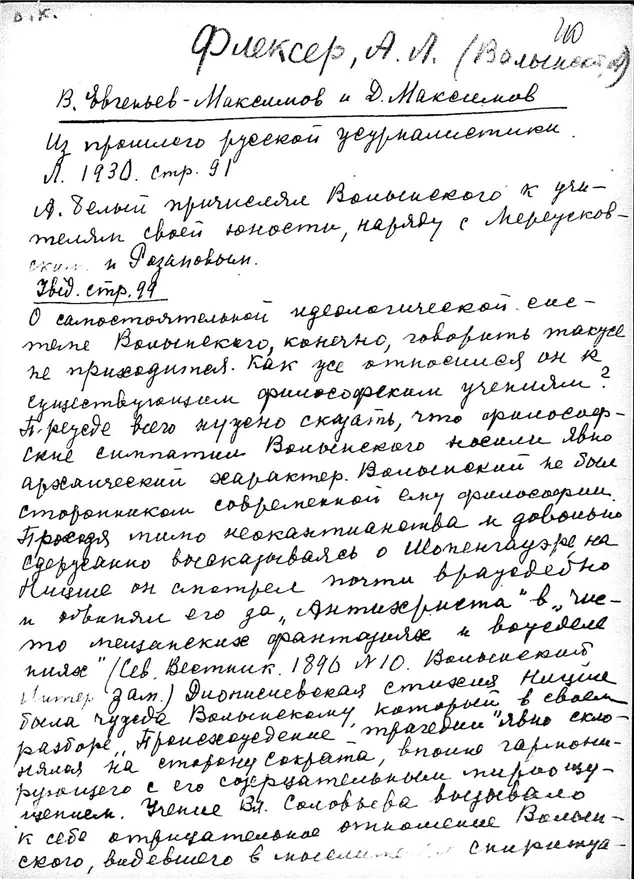 В. К.
40
Флексер, А. Л. (Волынский, А)
В. Евгеньев-Максимов и Д. Максимов
Из прошлого русской журналистики.
Л. 1930. стр. 91
А. Белый причислял Волынского к учи-
телям своей юности, наряду с Мережков-
ским и Розановым.
Ibid. стр. 99
О самостоятельной идеологической сис-
теме Волынского, конечно, говорить также
не приходится. Как же относился он к
существующим философским учениям?
Прежде всего нужно сказать, что философ-
ские симпатии Волынского носили явно
архаический характер. Волынский не был
сторонником современной ему философии.
Проходя мимо неокантианства и довольно
сдержанно высказываясь о Шопенгауэре на
Ницше он смотрел почти враждебно
и обвинял его за „Антихриста" в „чис-
то мещанских фантазиях и вожделе
ниях" (Сев. Вестник. 1896 N 10. Волынский
Литер. Зам.) Дионисиевская стихия Ницше
была чужда Волынскому, который в своем
разборе „Происхождение трагедии" явно скло-
нялся на сторону Сократа, вполне гармони-
рующего с его созерцательным мироощу-
щением. Учение Вл. Соловьева вызывало
к себе отрицательное отношение Волын-
ского, видевшего в спиритуа-